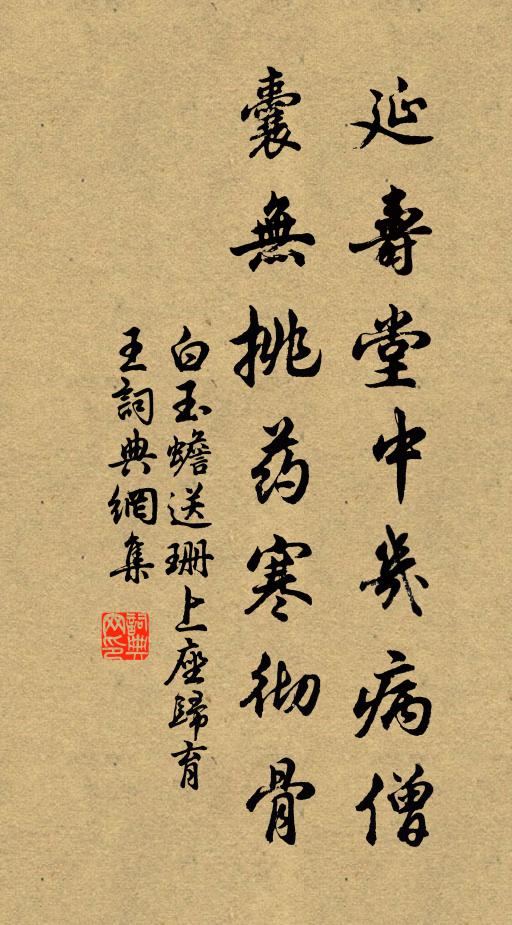 延壽堂中幾病僧
囊無挑药寒彻骨
白玉蟾送珊上座歸育
王詞典網集
詞典網印